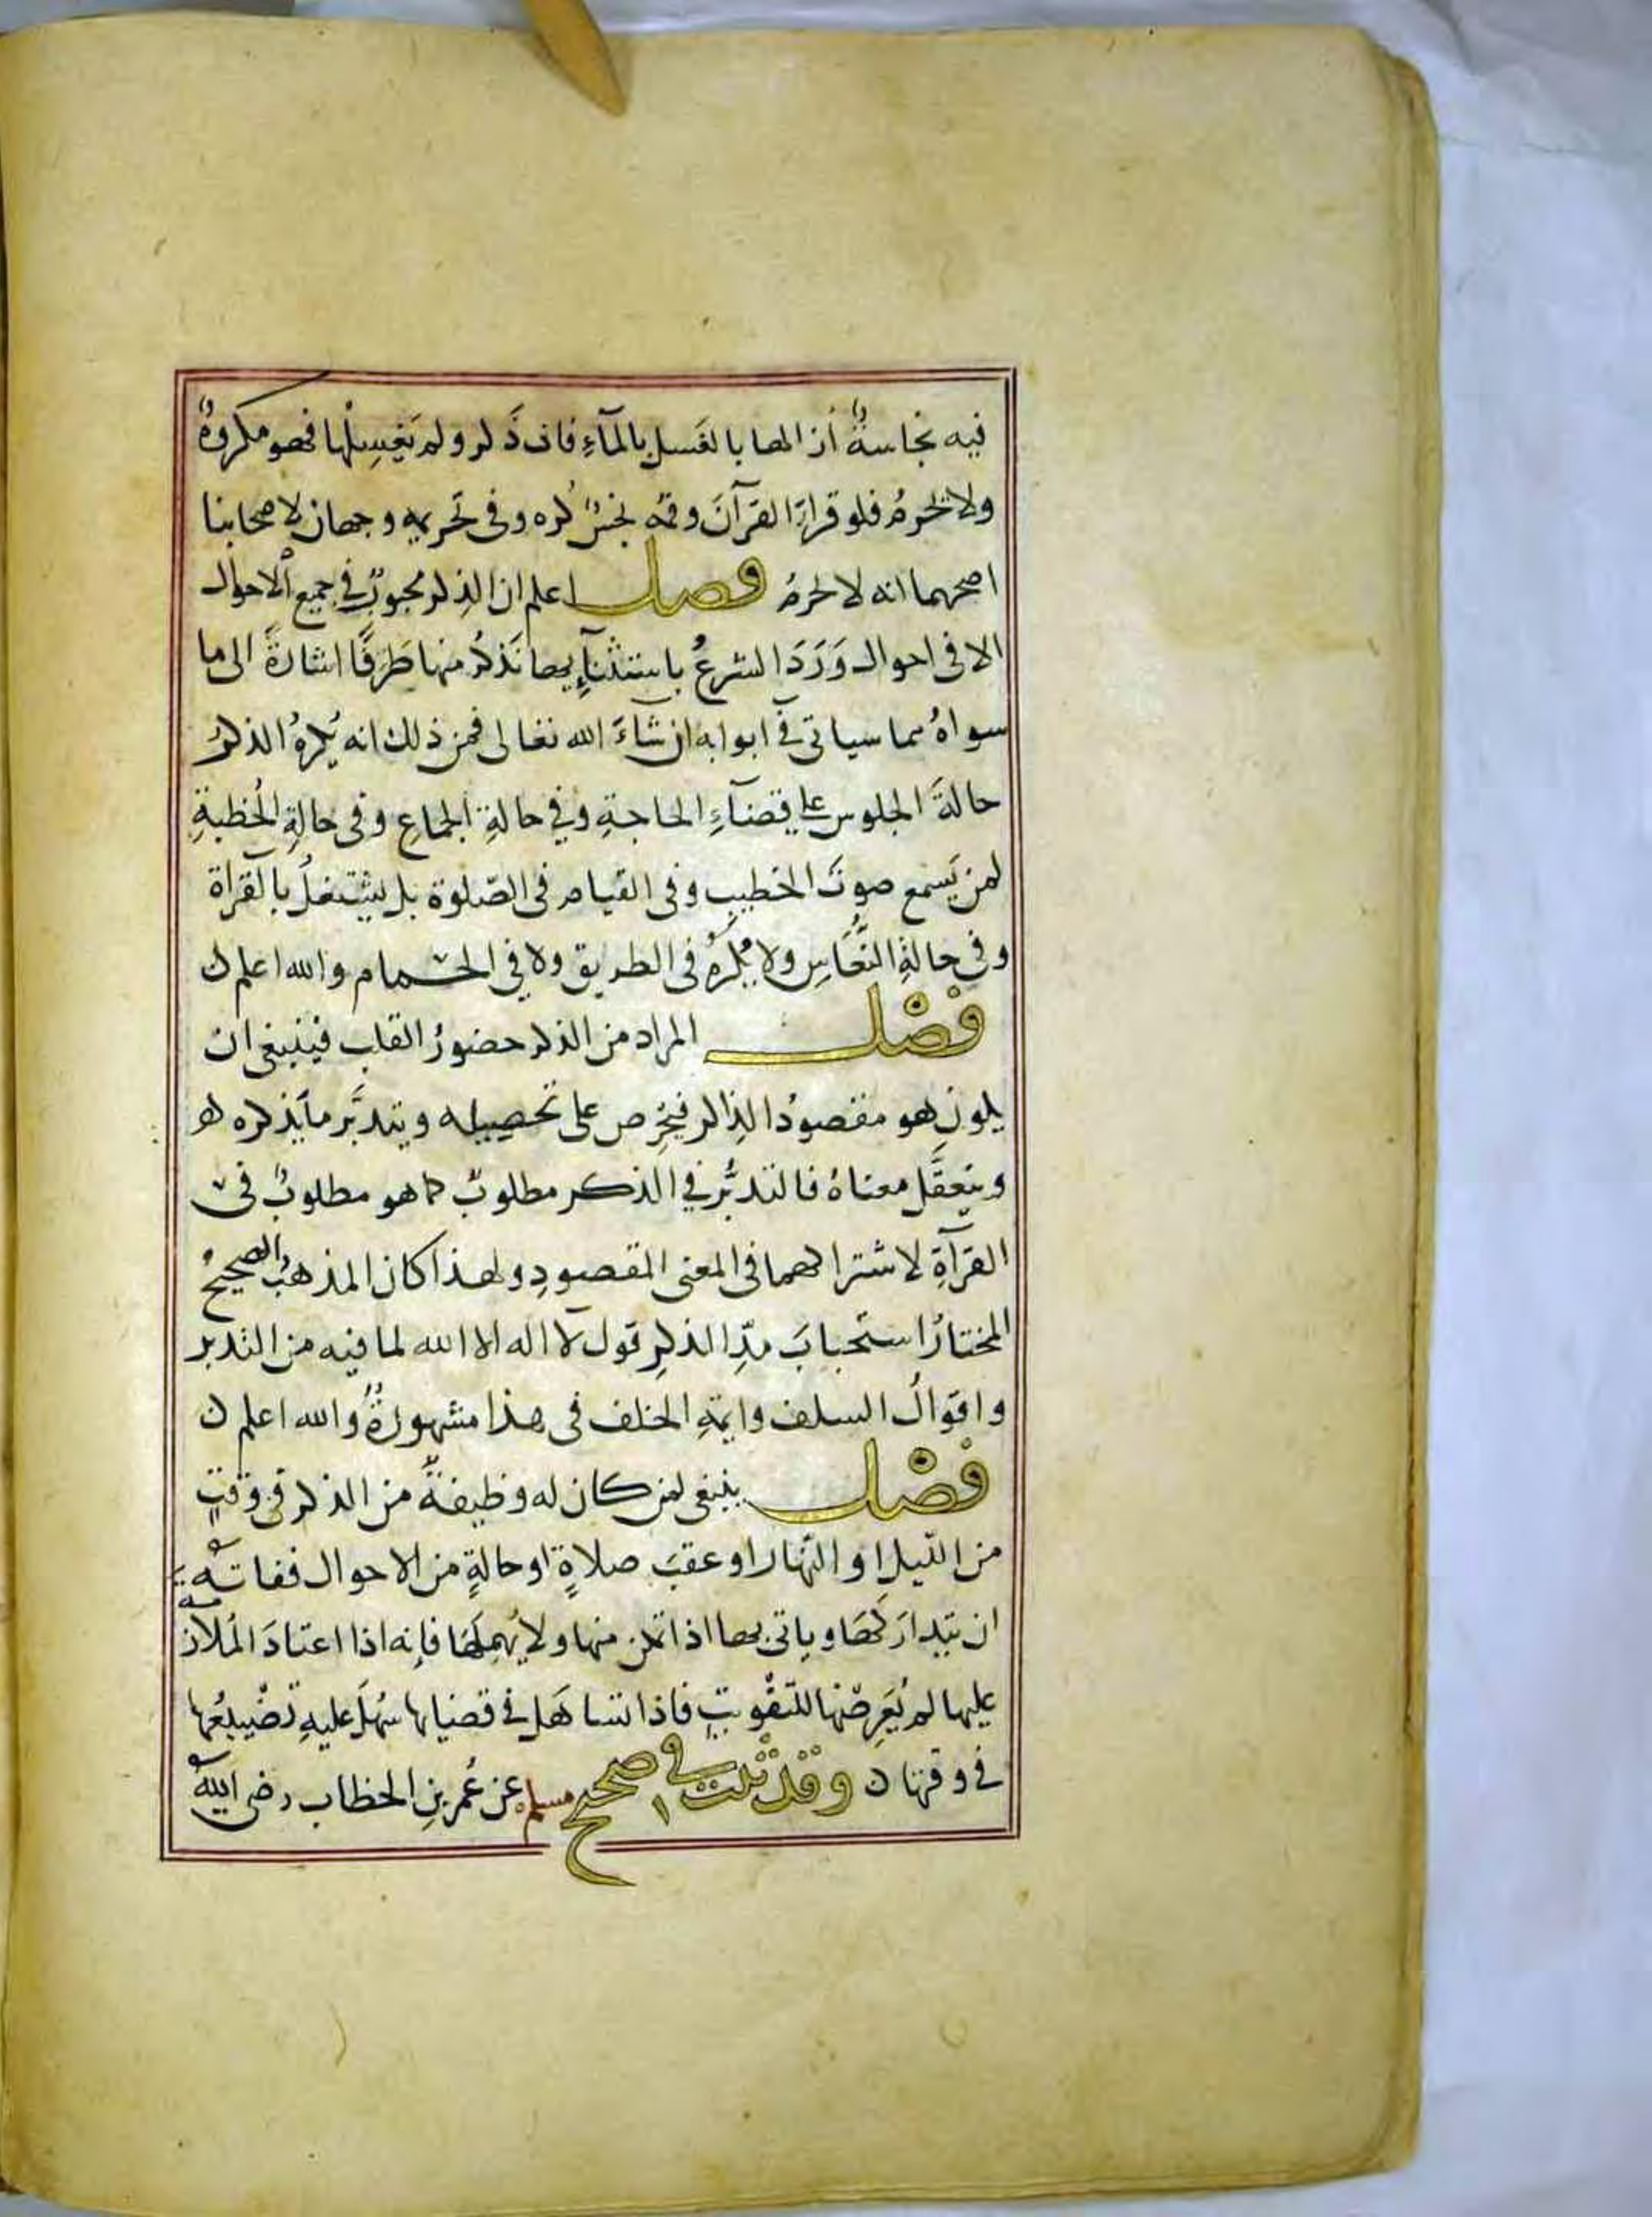 فيه نجاسةٌ أزالها بالغَسل بالمآءِ فان ذَكر ولم يَغسِلْها فهو مكروهٌ
ولا يحرمُ فلو قراءَ القرآنَ وفمُه نجسٌ كُره وفى تحريمه وجهان لاصحابنا
اصحهما انه لا يحرمُ فصل اعلم ان الذِكر محبوبٌ في جميع الاحوال
الا فى احوال وَرَدَ الشرعُ باستثنآءِ بها نَذكُر منها طَرَفًا اشارةً الى ما
سواهُ مما سياتى في ابوابه ان شآءَ الله تعالى فمن ذلك انه يُكرهُ الذكرُ
حالةَ الجلوس على قضآءِ الحاجةِ وفي حالةِ الجماعِ وفى حالةِ الخُطبةِ
لمن يَسمع صوتَ الخطيبِ وفى القيام فى الصّلوة بل يشتغلُ بالقرآة
وفي حالةِ النُّعَاسِ ولا يُكرَهُ فى الطريق ولا في الحمام والله اعلم ن
فصْل المراد من الذكر حضورُ القلب فينبغى ان
يكون هو مقصودُ الذاكر فيَحرِص على تحصيله ويتدبَّر ما يَذكره هو
ويتعقَّل معناهُ فالتدبُّر في الذكر مطلوبٌ كما هو مطلوبٌ فى
القرآةِ لاشتراكهما فى المعنى المقصودِ ولهذا كان المذهبُ الصحيحُ
المختارُ استحبابَ مدِّ الذكرِ قول لا اله الا الله لما فيه من التدبر
واقوالُ السلف وايمةِ الخلف فى هذا مشهورةٌ والله اعلم ن
فصْل ينبغى لمن كان له وظيفةٌ من الذكر فى وقتٍ
من الليلِ او النّهار او عقبَ صلاةٍ او حالةٍ من الاحوال ففاتته
ان يتداركَها وياتى بها اذا تمكن منها ولا يُهملَها فإنه اذا اعتادَ المُلازمة
عليها لم يُعَرِضْها للتفْويتِ فاذا تساهَل في قضايها سَهُلَ عليهِ تضْييعُها
في وقتها ن وقد ثبت في صحيح مسلم عن عُمر بنِ الخطاب رضى اللهُ